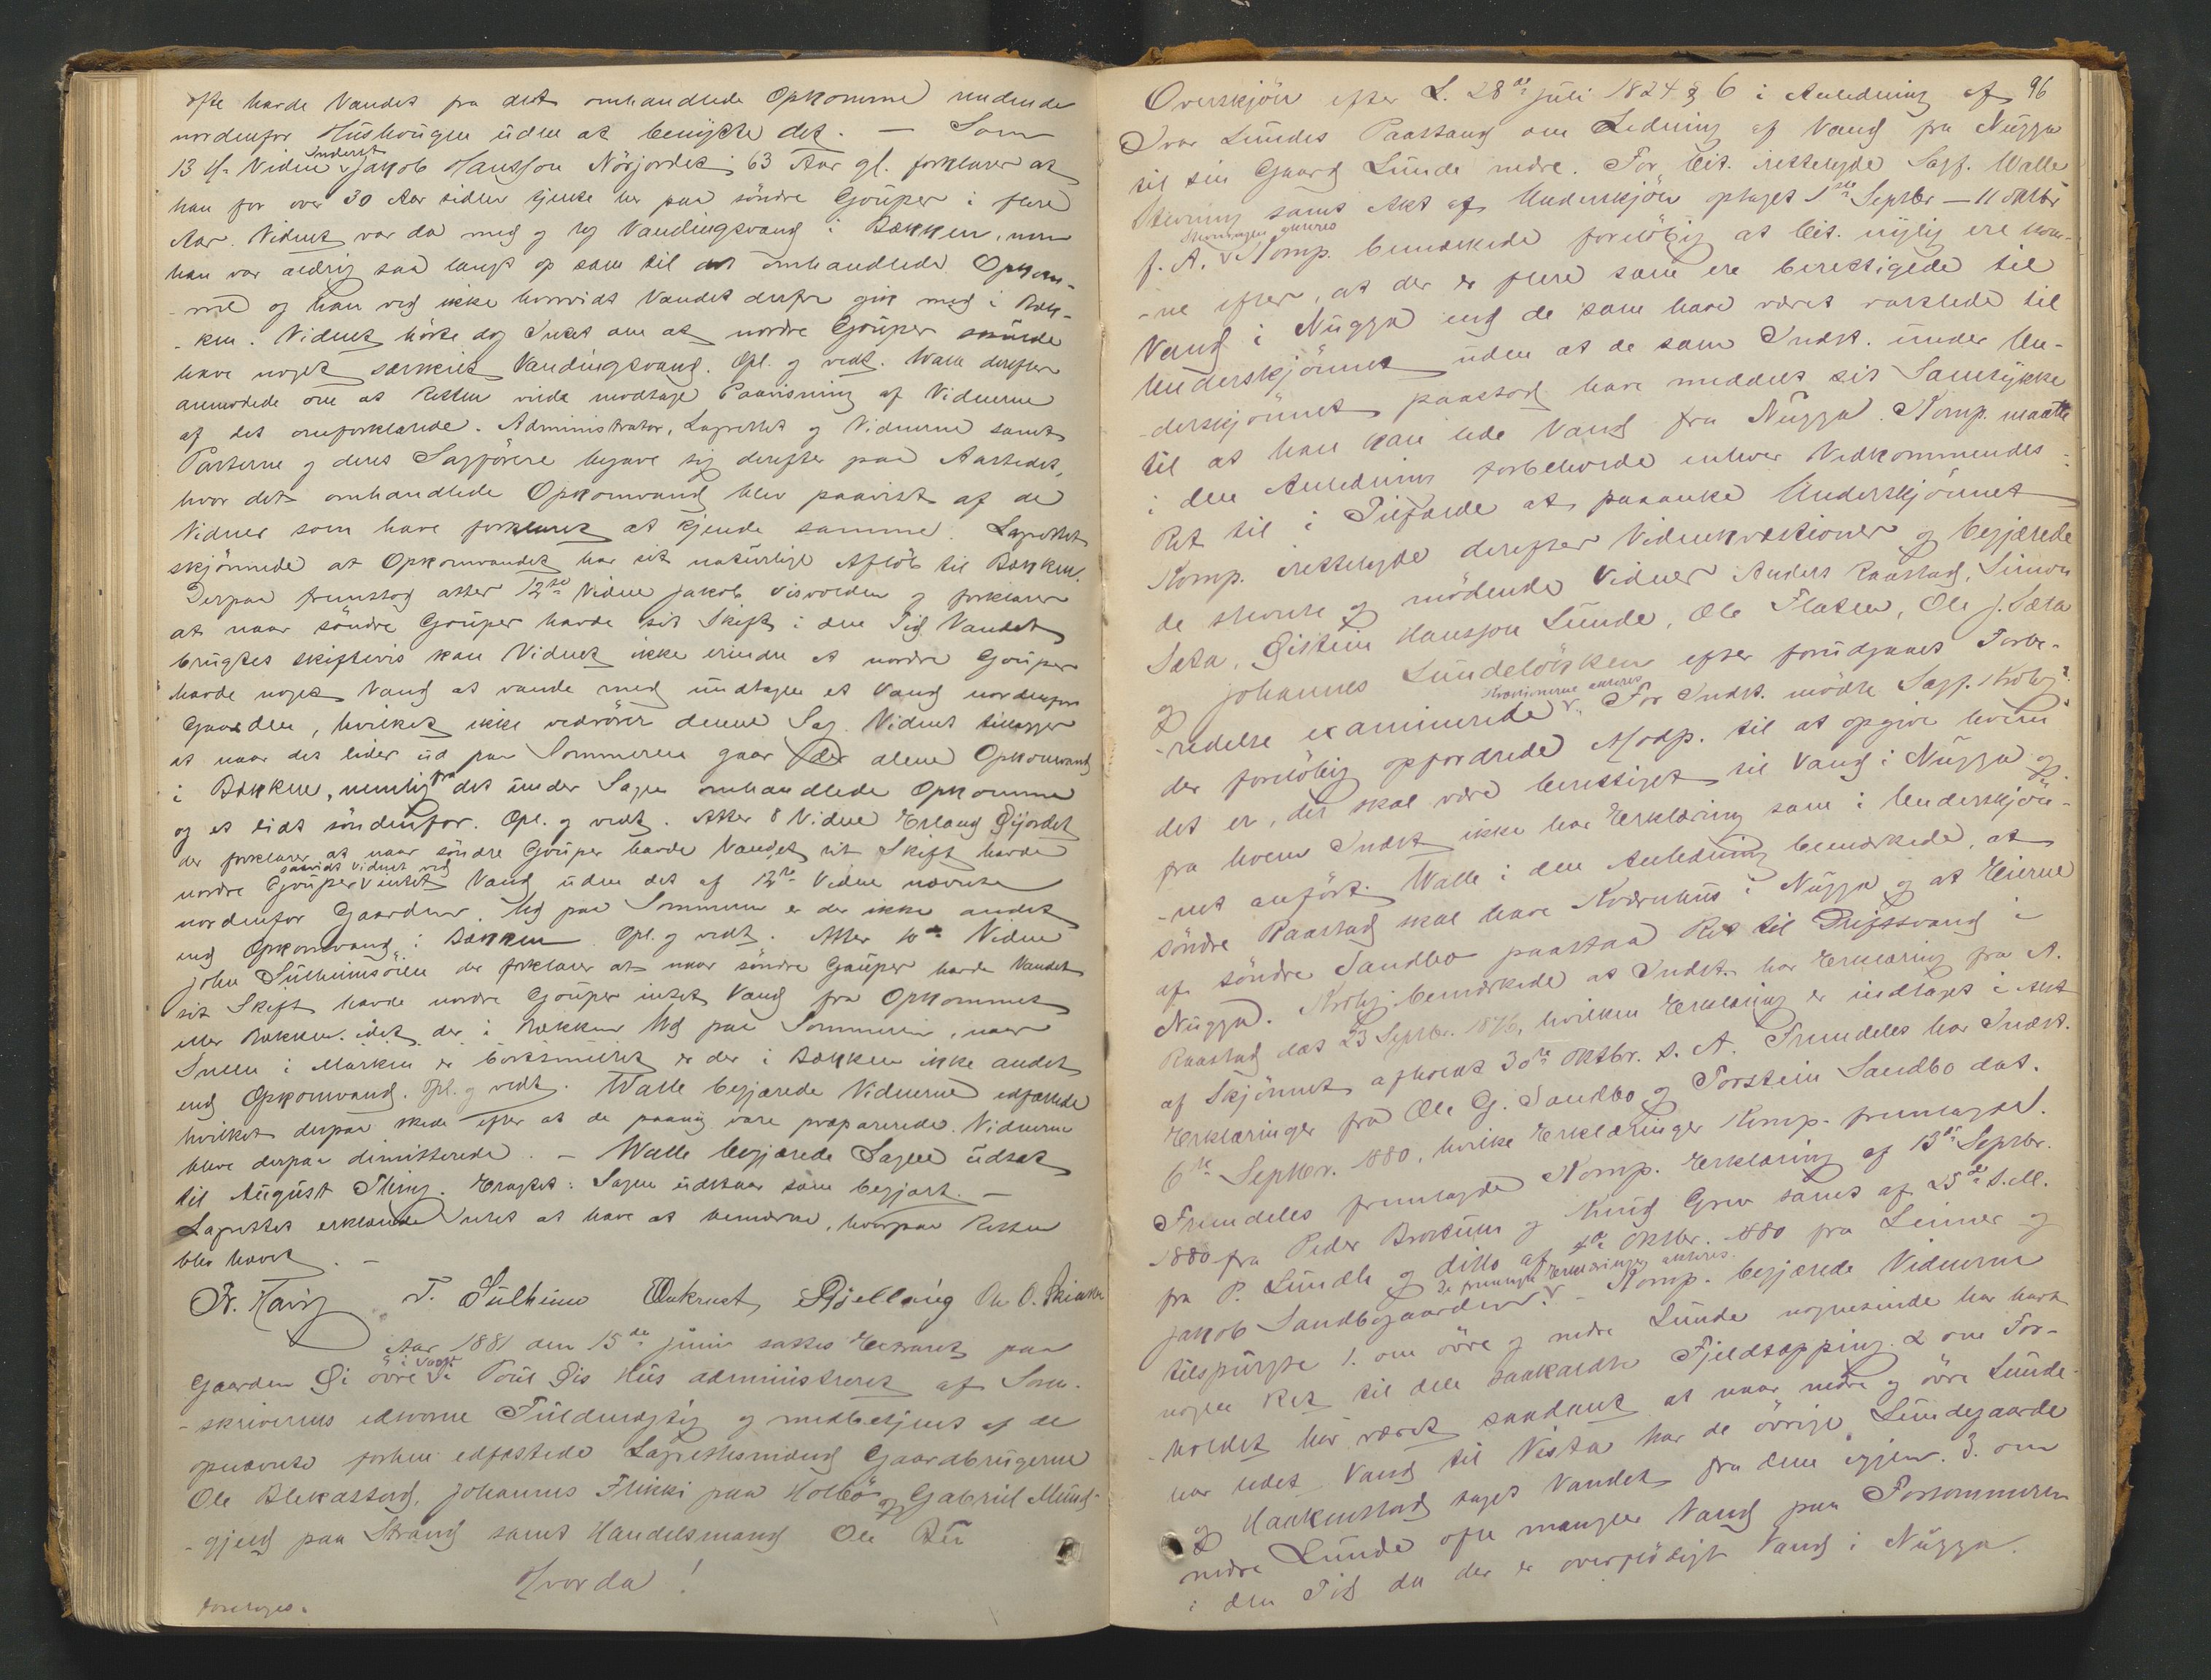 ofte havde Vandet fra det omhandlede Opkomme rendende
nordenfor Hushougen uden at benytte det. — Som
13de Vidne Inderst Jakob Hansson Nörjordet 63 Aar gl. forklarer at
han for over 30 Aar siden tjente her paa söndre Gouper i flere
Aar. Vidnet var da med og log Vandingsvand i Bækken, men
han var aldrig saa langt op som til det omhandlede Opkom-
-me og han ved ikke hvorvidt Vandet derfra gik med i Bæk-
-ken. Vidnet hörte dog Intet om at nordre Gouper skulde
have noget særskilt Vandingsvand. Opl. og vedt. Walle derefter
anmodede om at Retten vilde modtage Paavisning af Vidnerne
af det omforklarede. Administrator, Lagrettet og Vidnerne samt
Parterne og deres Sagförere begave sig derefter paa Aastedet,
hvor det omhandlede Opkomvand blev paavist af de
Vidner som have forklaret at kjende samme. Lagrettet
skjönnede at Opkomvandet har sit naturlige Aflöb til Bækken.
Derpaa fremstod atter 12te Vidne Jakob Visvolden og forklarer
at naar söndre Gouper havde sit Skift i den Tid Vandet
brugtes skiftevis kan Vidnet ikke erindre at nordre Gouper
havde noget Vand at vande med undtagen et Vand nordenfor
Gaarden, hvilket ikke vedrörer denne Sag. Vidnet tillægger
at naar det lider ud paa Sommeren gaar der alene Opkomvand
i Bækken, nemlig fra det under Sagen omhandlede Opkomme
og et lidt söndenfor. Opl. og vedt. Atter 8 Vidne Erland Öijordet
der forklarer at naar söndre Gouper havde Vandet sit Skift havde
nordre Gouper saavidt Vidnet ved intet Vand uden det af 12te Vidne nævnte
nordenfor Gaarden. Ud paa Sommeren er der ikke andet
end Opkomvand i Bækken. Opl. og vedt. Atter 10de Vidne
John Sulheimsöien der forklarer at naar söndre Gouper havde Vandet
sit Skift havde nordre Gouper intet Vand fra Opkommet
eller Bækken idet der i Bækken Ud paa Sommeren, naar
Sneen i Marken er bortsmeltet er der i Bækken ikke andet
end Opkomvand. Opl. og vedt. Walle begjærede Vidnerne edfæstede
hvilket derpaa skede efter at de paany vare præparerede. Vidnerne
bleve derpaa dimitterede. — Walle begjærede Sagen udsat
til August Thing. Eragtet: Sagen udstaar som begjært. —
Lagrettet erklærede Intet at have at bemærke, hvorpaa Retten
blev hævet. —
Fr. Harig T. Sulheim Aukrust Ole O. Skinnar
Aar 1881 den 15de Juni sattes Extraret paa
Gaarden Öi övre i Vaage Poul Öis Hus administreret af Soren-
-skriverens edsvorne Fuldmægtig og medbetjent af de
opnævnte forhen edfæstede Lagrettesmænd Gaardbrugerne
Ole Blekastad, Johannes Flikki paa Holbö og Gabriel Mund-
-gjeld paa Strand samt Handelsmand Ole Bu
Hvorda!
foretoges.
96
Overskjön efter L. 28de Juli 1824 § 6 i Anledning af
Ivar Lundes Paastand om Ledning af Vand fra Nugga
til sin Gaard Lunde nedre. For Cit. irettelagde Sagf. Walle
Stevning samt Akt af Underskjön optaget 1ste Septbr — 11 Oktbr
f. A. Stevningen anteres Komp. bemærkede foreløbig at Cit. nylig ere kom-
-ne efter, at der er flere som ere berettigede til
Vand i Nugga end de som have været varslede til
Underskjönnet uden at de som Indst. under Un-
-derskjönnet paastod have meddelt sit Samtykke
til at han kan lede Vand fra Nugga. Komp. maatte
i den Anledning forbeholde enhver Vedkommendes
Ret til i Tilfælde at paaanke Underskjönnet
Komp. irettelagde derefter Vidnekvestioner og begjærede
de stevnte og mödende Vidner Anders Raastad, Simon
Sæta, Öistein Hansson Lunde, Ole Flaten, Ole J. Sæta
og Johannes Lundelökken efter forudgaaet Forbe-
-redelse examinerede Kvestionerne anteres. For Indst. mödte Sagf. Kroby
der foreløbig opfordrede Modp. til at opgive hvem
det er, der skal være berettiget til Vand i Nugga og
fra hvem Indst. ikke har Erklæring som i Underskjön-
-net anfört. Walle i den Anledning bemærkede, at
söndre Raastad skal have Kværnhus i Nugga og at Eierne
af söndre Sandbo paastaa Ret til Driftsvand i
Nugga. Kroby bemærkede at Indst. har Erklæring fra A.
Raastad dat 23 Septbr. 1876, hvilken Erklæring er indtaget i Akt
af Skjönnet afholdt 30te Oktbr. s. A. Fremdeles har Indst.
Erklæringer fra Ole G. Sandbo og Torstein Sandbo dat.
6te Septbr. 1880, hvilke Erklæringer Komp. fremlagde.
Fremdeles fremlagde Komp. Erklæring af 13de Septbr.
1880 fra Peder Brostuen og Knud Grev samt af 25de s. M.
fra P. Lunde og ditto af 4de Oktbr. 1880 fra Leiner og
Jakob Sandbogaarden. De fremlagte Erklæringer anteres. - Komp. begjærede Vidnerne
tilspurgte 1. om övre og nedre Lunde nogensinde har havt
nogen Ret til den saakaldte Fjeldtapping. 2 om For-
-holdet har været saadant at naar nedre og övre Lunde
har ledet Vand til Vesta har de övrige Lundegaarde
og Haakenstad taget Vandet fra dem igjen. 3. om
nedre Lunde ofte mangler Vand paa Forsommeren
i den Tid da der er overflödigt Vand i Nugga.